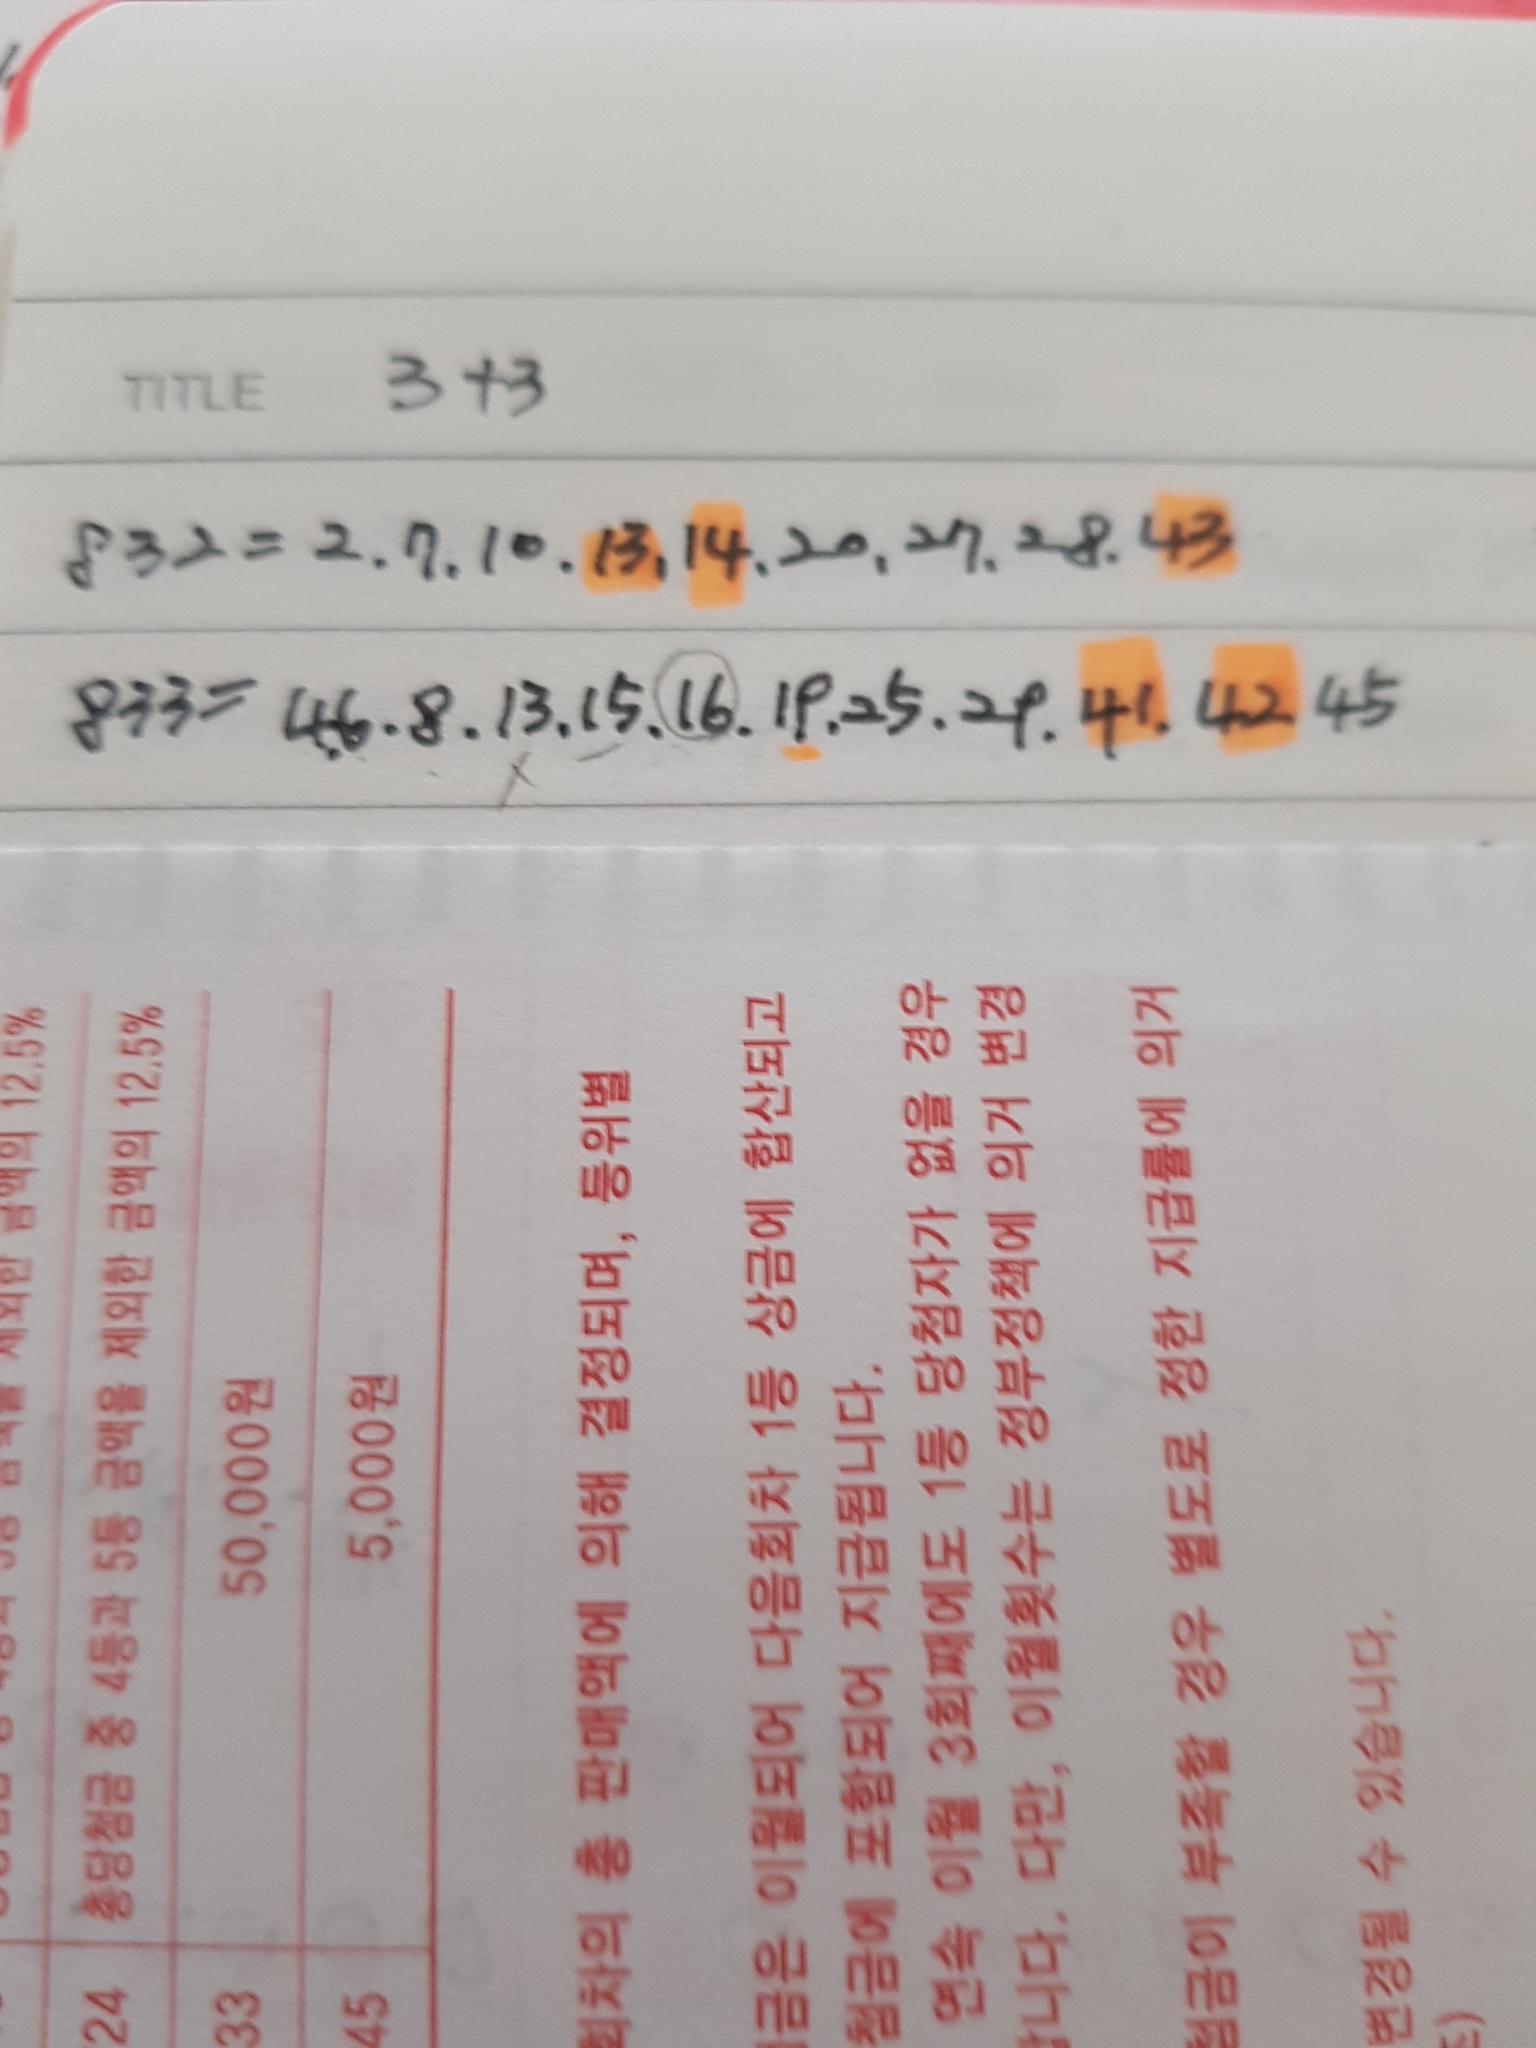 TITLE 3+3
832=2.7.10.13.14.20.27.28.43
833=4.6.8.13.15.16.19.25.29.41.42 45
12.5%
총당첨금 중 4등과 5등 금액을 제외한 금액의 12.5%
50,000원
5,000원
총 판매액에 의해 결정되며, 등위별
이월되어 다음회차 1등 상금에 합산되고
포함되어 지급됩니다.
연속 이월 3회째에도 1등 당첨자가 없을 경우
다만, 이월횟수는 정부정책에 의거 변경
부족할 경우 별도로 정한 지급률에 의거
변경될 수 있습니다.